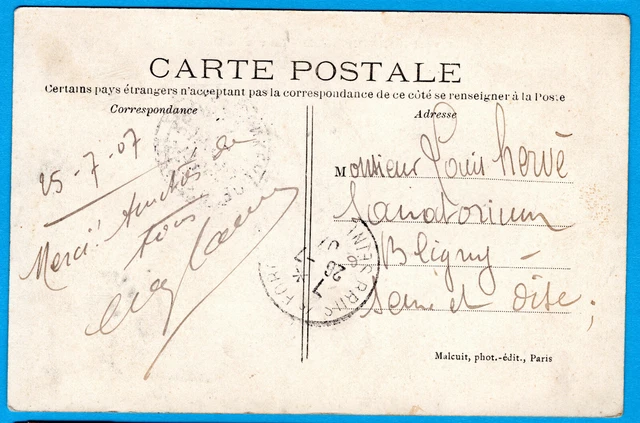 CARTE POSTALE
Certains pays étrangers n'acceptant pas la correspondance de ce côté se renseigner à la Poste
Correspondance
Adresse
25-7-07
Merci! de
tous
Monsieur Louis Hervé
Sanatorium
Bligny -
Seine et Oise;
Malcuit, phot.-édit., Paris